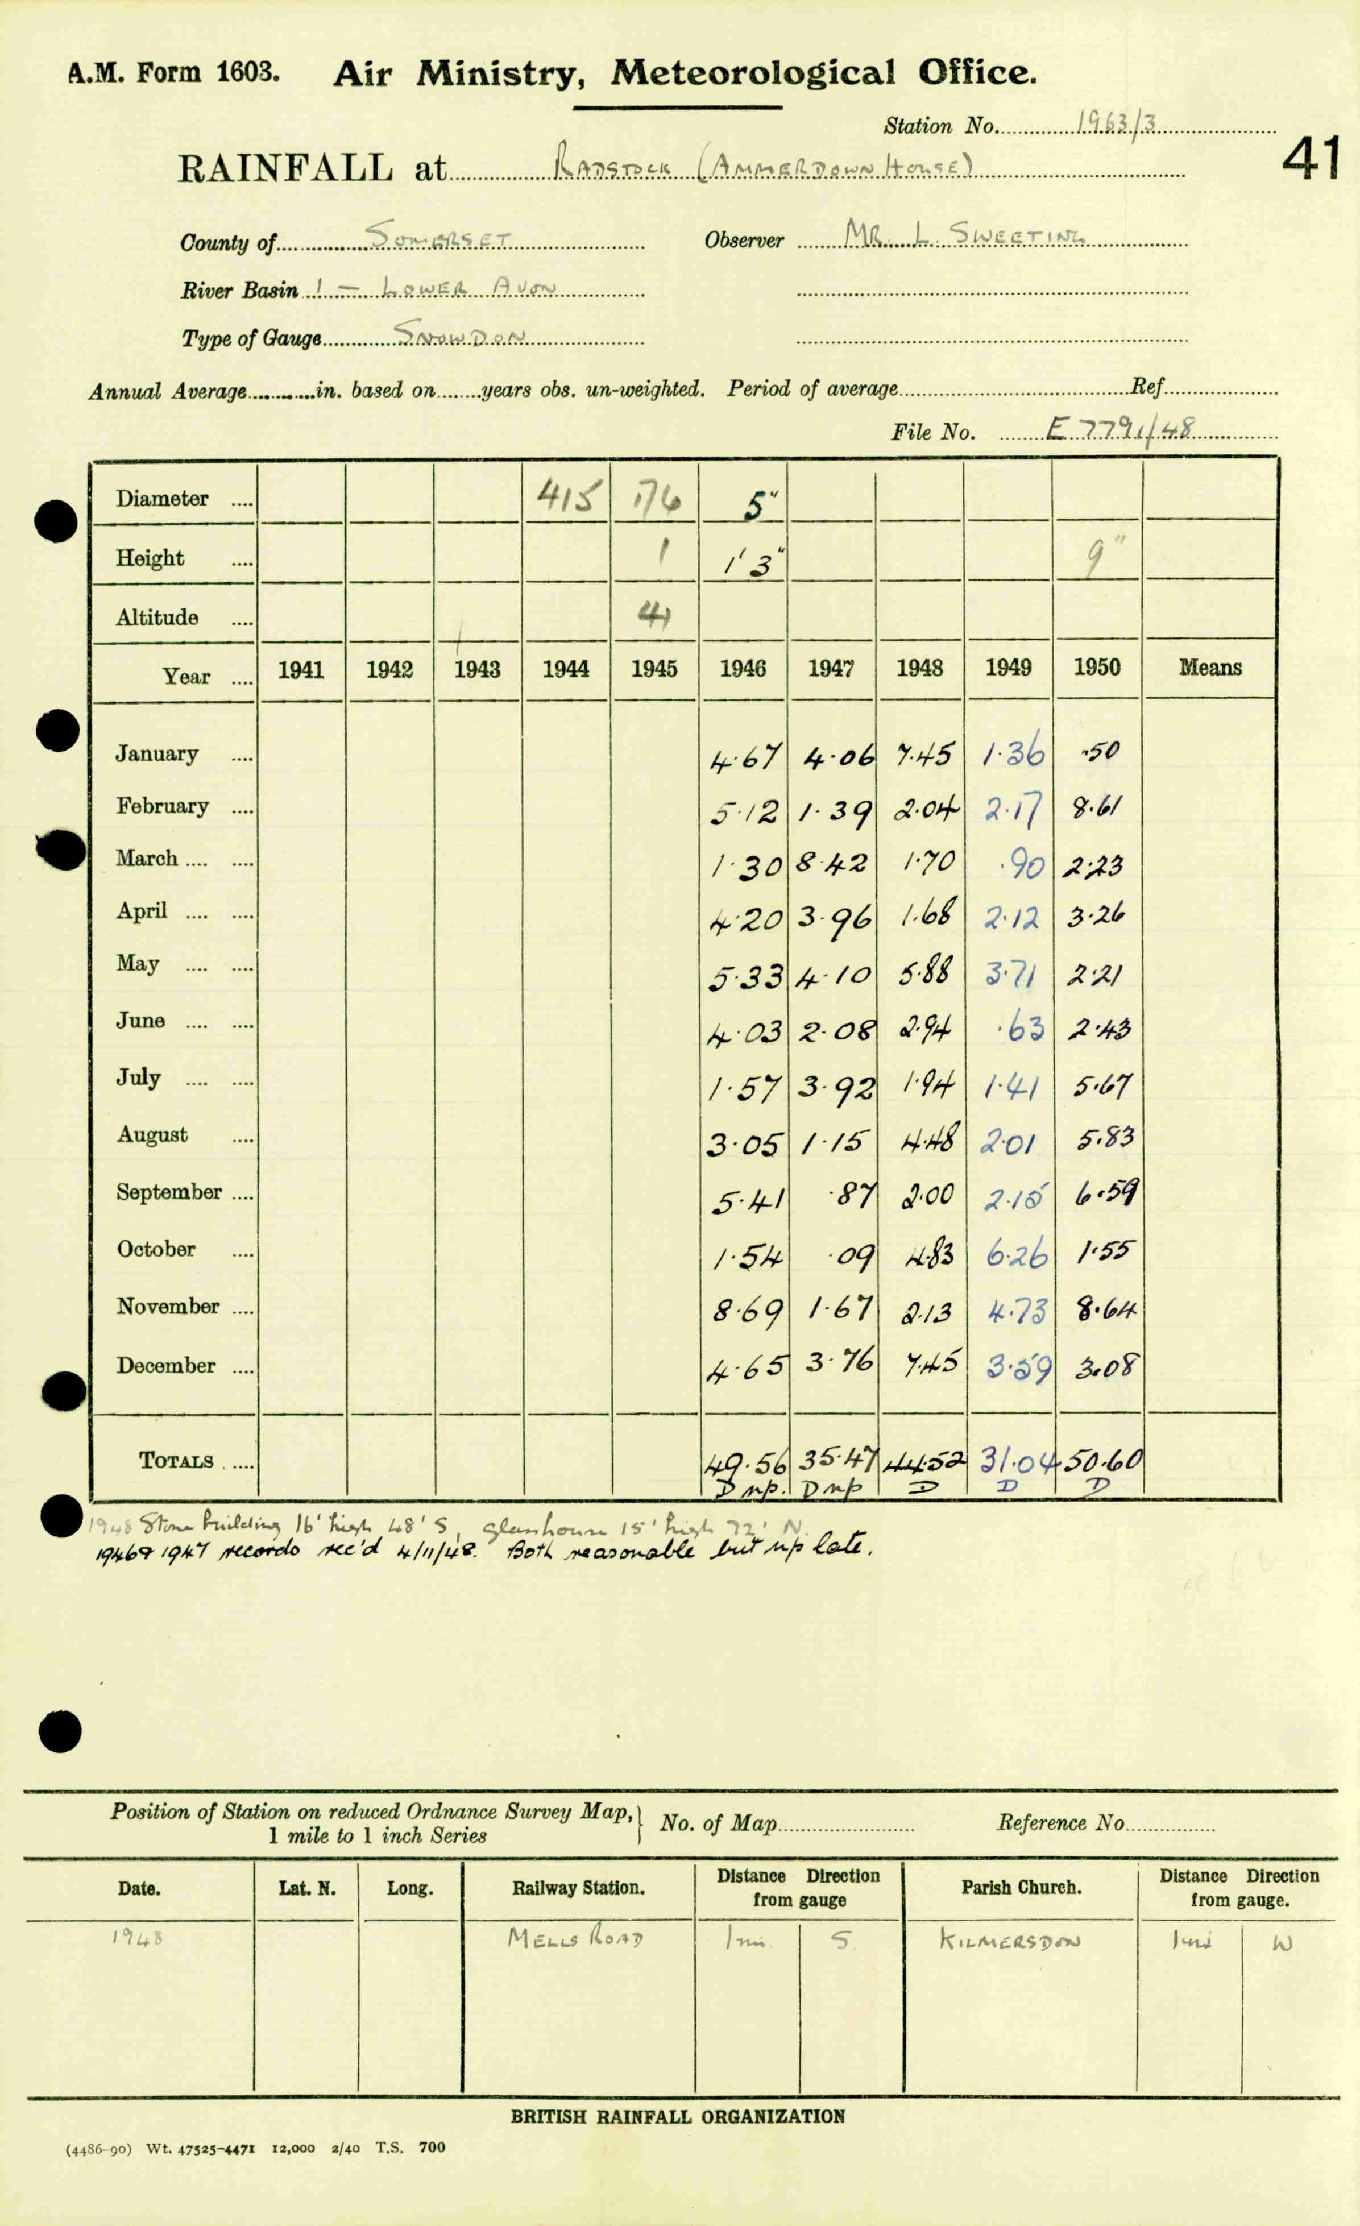 A.M. Form 1603. Air Ministry, Meteorological Office.
Station No. 1963/3
41
RAINFALL at RADSTOCK (AMMERDOWN HOUSE)
County of SOMERSET Observer MR. L. SWEETING
River Basin 1 — LOWER AVON
Type of Gauge SNOWDON
Annual Average in. based on years obs. un-weighted. Period of average Ref
File No. E 7791/48
Diameter 415 176 5"
Height 1 1' 3" 9"
Altitude 41
Year 1941 1942 1943 1944 1945 1946 1947 1948 1949 1950 Means
January 4.67 4.06 7.45 1.36 .50
February 5.12 1.39 2.04 2.17 8.61
March 1.30 8.42 1.70 .90 2.23
April 4.20 3.96 1.68 2.12 3.26
May 5.33 4.10 5.88 3.71 2.21
June 4.03 2.08 2.94 .63 2.43
July 1.57 3.92 1.94 1.41 5.67
August 3.05 1.15 4.48 2.01 5.83
September 5.41 .87 2.00 2.15 6.59
October 1.54 .09 4.83 6.26 1.55
November 8.69 1.67 2.13 4.73 8.64
December 4.65 3.76 7.45 3.59 3.08
TOTALS 49.56 35.47 44.52 31.04 50.60
D np. D np D D D
1948 Stone building 16' high 48' S, glasshouse 15' high 72' N.
1946 & 1947 records rec'd 4/11/48. Both reasonable but np late.
Position of Station on reduced Ordnance Survey Map, 1 mile to 1 inch Series No. of Map Reference No
Date. Lat. N. Long. Railway Station. Distance Direction from gauge Parish Church. Distance Direction from gauge.
1948 MELLS ROAD 1 mi. S KILMERSDON 1 mi W
BRITISH RAINFALL ORGANIZATION
(4486-90) Wt. 47525-4471 12,000 2/40 T.S. 700